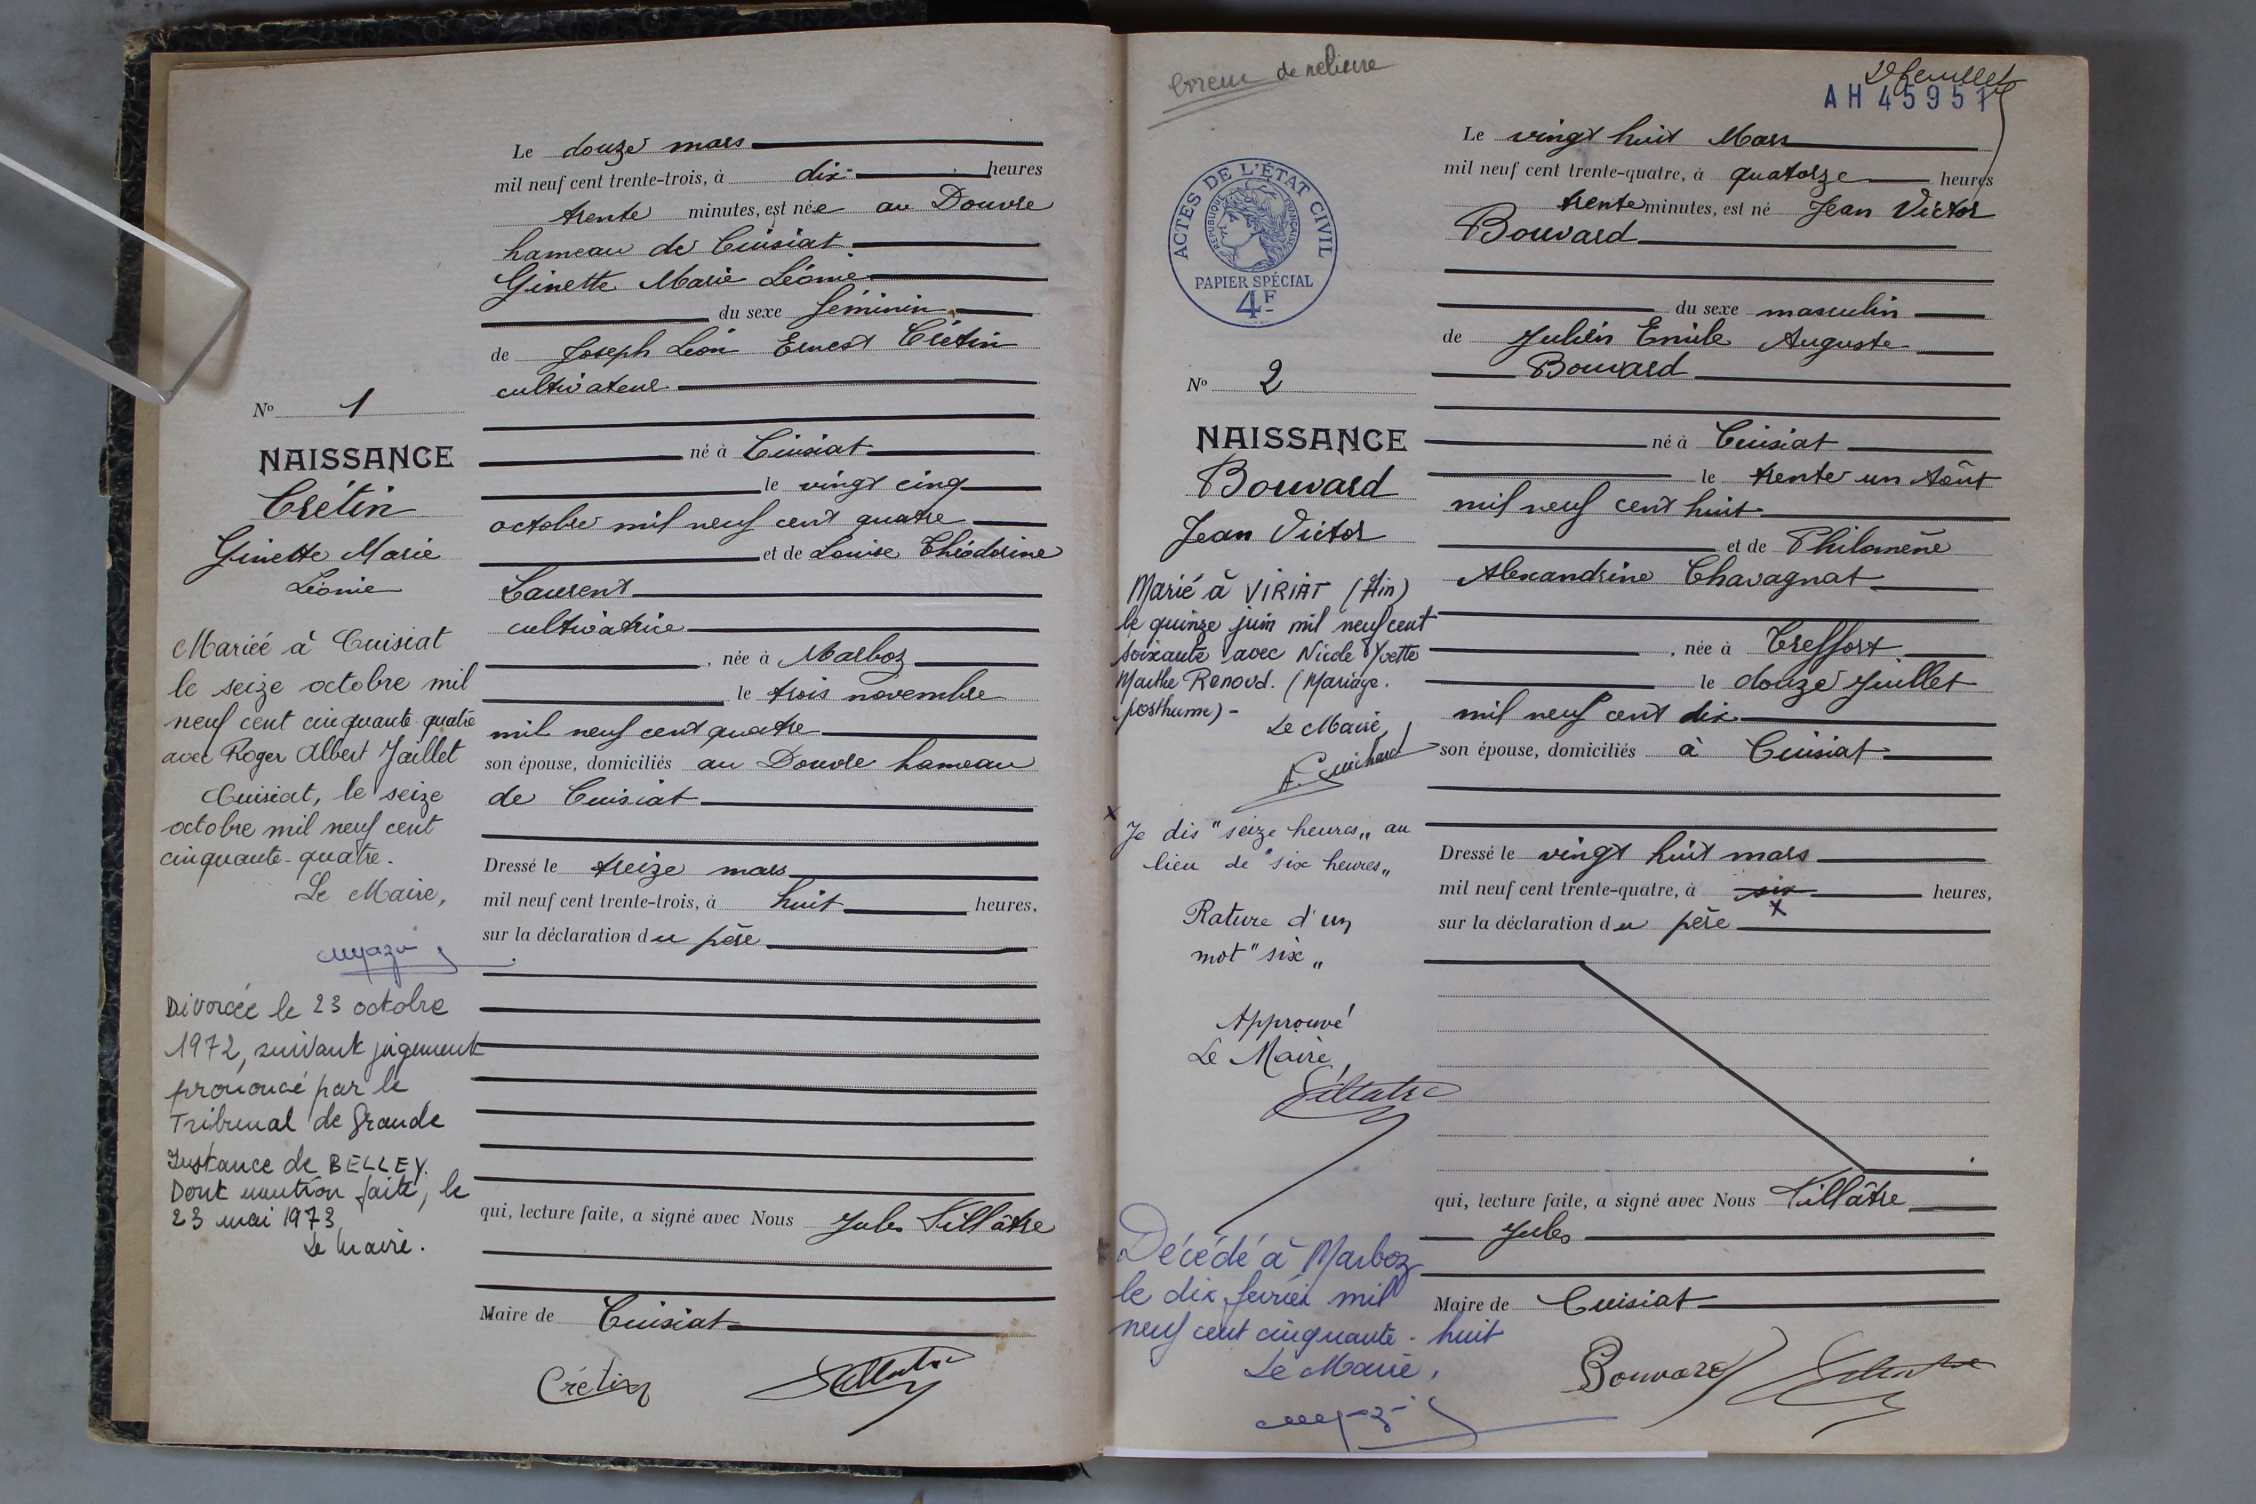 Le douze mars
mil neuf cent trente-trois, à dix heures
trente minutes, est née au Douvre
hameau de Cuisiat
Ginette Marie Léonie
du sexe féminin
de Joseph Léon Ernest Crétin
cultivateur
né à Cuisiat
le vingt cinq
octobre mil neuf cent quatre
et de Louise Théodorine
Laurent
cultivatrice
, née à Marboz
le trois novembre
mil neuf cent quatre
son épouse, domiciliés au Douvre hameau
de Cuisiat
Dressé le treize mars
mil neuf cent trente-trois, à huit heures,
sur la déclaration du père
qui, lecture faite, a signé avec Nous Jules Tillâtre
Maire de Cuisiat
Crétin
Nº 1
NAISSANCE
Crétin
Ginette Marie
Léonie
Mariée à Cuisiat
le seize octobre mil
neuf cent cinquante-quatre
avec Roger Albert Jaillet
Cuisiat, le seize
octobre mil neuf cent
cinquante-quatre.
Le Maire,
Divorcée le 23 octobre
1972, suivant jugement
prononcé par le
Tribunal de Grande
Instance de BELLEY.
Dont mention faite, le
23 mai 1973
Le Maire.
Erreur de reliure
2e feuillet
AH 45951
ACTES DE L'ÉTAT CIVIL
RÉPUBLIQUE FRANÇAISE
PAPIER SPÉCIAL
4F
Le vingt huit Mars
mil neuf cent trente-quatre, à quatorze heures
trente minutes, est né Jean Victor
Bouvard
du sexe masculin
de Julien Emile Auguste
Bouvard
né à Cuisiat
le trente un Août
mil neuf cent huit
et de Philomène
Alexandrine Chavagnat
, née à Treffort
le douze Juillet
mil neuf cent dix
son épouse, domiciliés à Cuisiat
Dressé le vingt huit mars
mil neuf cent trente-quatre, à six heures,
x
sur la déclaration du père
qui, lecture faite, a signé avec Nous Tillâtre
Jules
Maire de Cuisiat
Bouvard
Nº 2
NAISSANCE
Bouvard
Jean Victor
Marié à VIRIAT (Ain)
le quinze juin mil neuf cent
soixante avec Nicole Yvette
Marthe Renoud. (Mariage
posthume) -
Le Maire,
A. Guichard
x Je dis "seize heures" au
lieu de "six heures"
Rature d'un
mot "six"
Approuvé
Le Maire,
Tillatre
Décédé à Marboz
le dix février mil
neuf cent cinquante-huit
Le Maire,